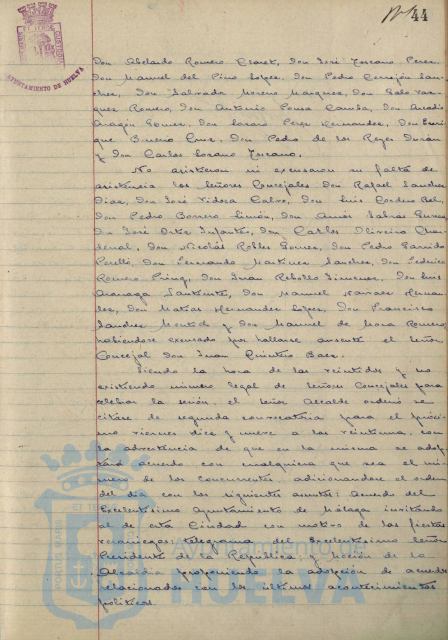 44
AYUNTAMIENTO DE HUELVA
Don Abelardo Romero Claret, Don José Toscano Perez
Don Manuel del Pino Lopez, Don Pedro Cerrejón San-
chez, Don Salvador Moreno Marquez, Don Galo Vaz-
quez Romero, Don Antonio Ponsa Camba, Don Amadio
Aragón Gomez, Don Lazaro Perez Hernandez, Don Enri-
que Bueno Cruz, Don Pedro de los Reyes Durán
y Don Carlos Lozano Toscano.
No asistieron ni excusaron su falta de
asistencia los Señores Concejales Don Rafael Sanchez
Diaz, Don José Vidosa Calvo, Don Luis Cordero Bel,
Don Pedro Borrero Limón, Don Amós Sabras Gurrea
Don José Ortiz Infantes, Don Carlos Oliveira Chan-
denal, Don Nicolás Robles Gomez, Don Pedro Garrido
Perelló, Don Fernando Martinez Sanchez, Don Federico
Romero Don Juan Rebollo Jimenez, Don Luis
Don Manuel Narvaez Hernan-
dez, Don Matías Hernandez Lopez, Don Francisco
Sanchez y Don Manuel de Mora Romero
habiendose excusado por hallarse ausente el Señor
Concejal Don Juan Quintero Baez.
Siendo la hora de las veintidos y no
existiendo número legal de Señores Concejales para
celebrar la sesión, el Señor Alcalde ordenó se
citase de segunda convocatoria para el próxi-
mo viernes diez y nueve a las veintiuna, con
la advertencia de que en la misma se adop-
tará acuerdo con cualquiera que sea el nú-
mero de los concurrentes, adicionandose el orden
del dia con los siguientes asuntos: Acuerdo del
Excelentisimo Ayuntamiento de Málaga invitando
al de esta Ciudad con motivo de las fiestas
veraniegas; telegrama del Excelentisimo Señor
Presidente de la República y Moción de la
Alcaldia proponiendo la adopción de acuerdos
relacionados con los últimos acontecimientos
politicos.
Ayuntamiento de
HUELVA